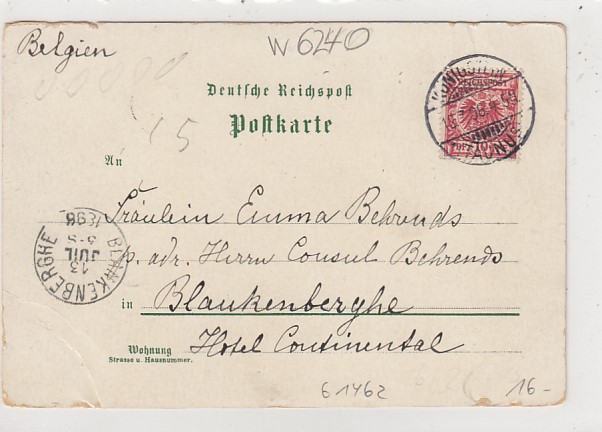 Belgien
W 6240
Deutsche Reichspost
Postkarte
15
An
REICHSPOST
10
TAUNUS
Fräulein Emma Behrends
p. adr. Herrn Consul Behrends
in Blankenberghe
Hotel Continental
Wohnung
Strasse u. Hausnummer.
BLANKENBERGHE
13
JUIL
5-S
1898
61462
16-